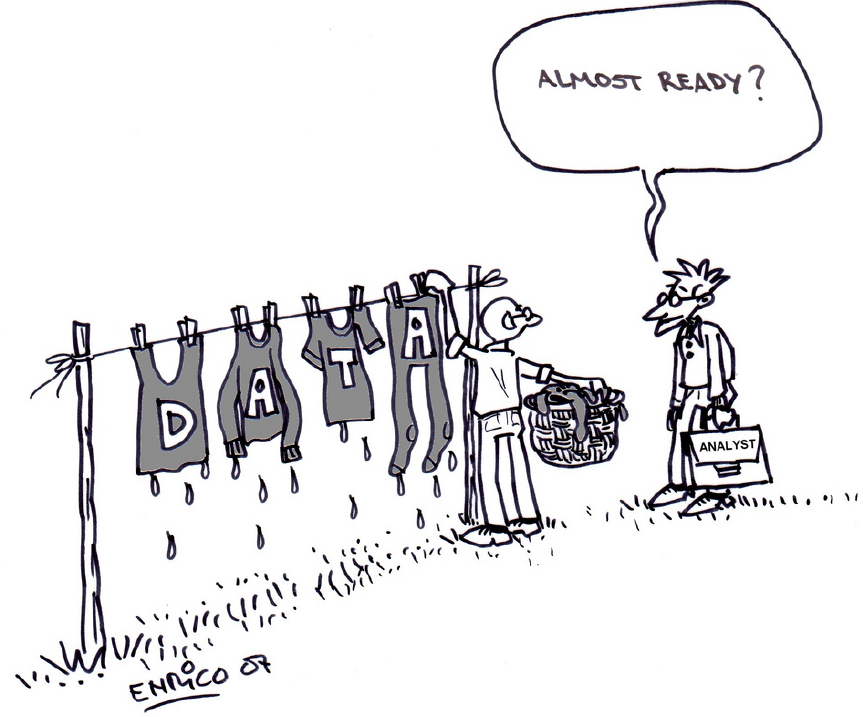 ALMOST READY?
D A T A
ANALYST
ENRICO 07